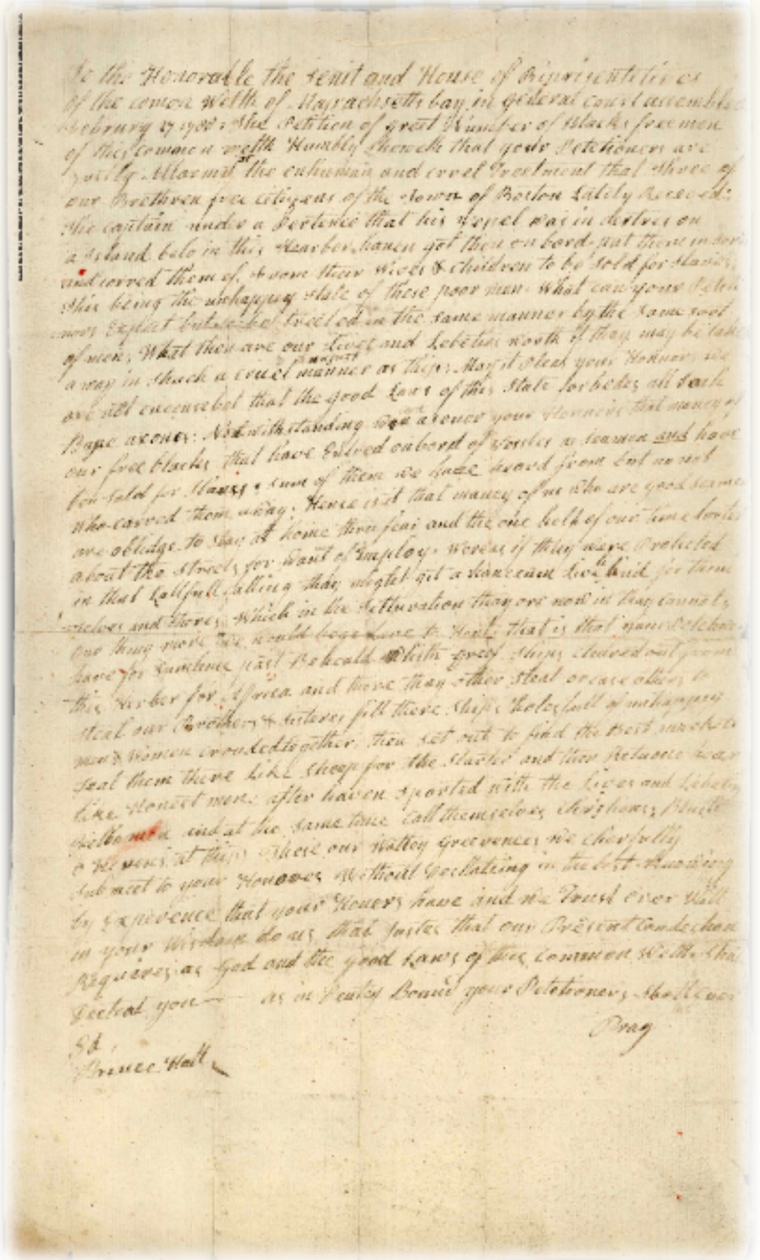 To the Honorable the Senit and House of Riprisentetives
of the comon Welth of Massachsetts bay in general court assembled
February 27 1788: The Petition of greet Number of Blacks freemen
of this common welth Humbly sheweth that your Petetioners are
Justly Allarmed at the enhuman and cruel Treetment that Three of
our Brethren free citizens of the Town of Boston Lately Receved:
The captain under a Pertence that his vesel was in destres on
a Island belo in this Hearber haven got them on bord put them in
and carred them of, from their Wives & children to be sold for slaves;
This being the unhappey state of these poor men What can your
Expect but to be treeted in the same manner by the same sort
of men; What then are our Lives and Lebeties worth if they may be
a way in shuch a cruel & unjust manner as thes: May it Pleas your Honnors we
are not ensensebel that the good Laws of this State forbedes all such
axones: Notwithstanding we can asuer your Honners that maney of
our free blacks that have Entred onbord of vessles as seamen and have
ben sold for Slaves & sum of them we have heard from but no not
who carred them away; Hence is it that maney of us who are good seamen
are obledge to stay at home thru fear and the one help of our time
about the streets for want of Employ; wereas if they were Protected
in that Lallfull calling thay might get a hansum livehud for them
selves and theres, Which in the setturation thay are now in thay cannot;
One thing more We would bege Leave to Hent, that is that
have for sumtime past Beheald Whith greef ships cleared out from
this Herber for Africa and there thay ether steal or case others to
steal our Brothers & sisters fill there ships holes full of unhappey
men & Women crouded together, then set out to find the Best
seal them there Like sheep for the slarter and then Returne hear
Like Honest men; after haven sported with the Lives and Lebeties
fellomen and at the same time call themselves Christions; Blush
o Hevens at thes. These our Wattey greevences we cherfully
submeet to your Honores Without Decttateing in the lest knowing
by Experence that your Honers have and we Trust ever Will
in your Wisdom do us that Justes that our Present Condechon
Requires as God and the good Laws of this Common Welth shall
you — as in Deutey Bound your Petetioners Shall ever
Pray
Sd.
Prince Hall